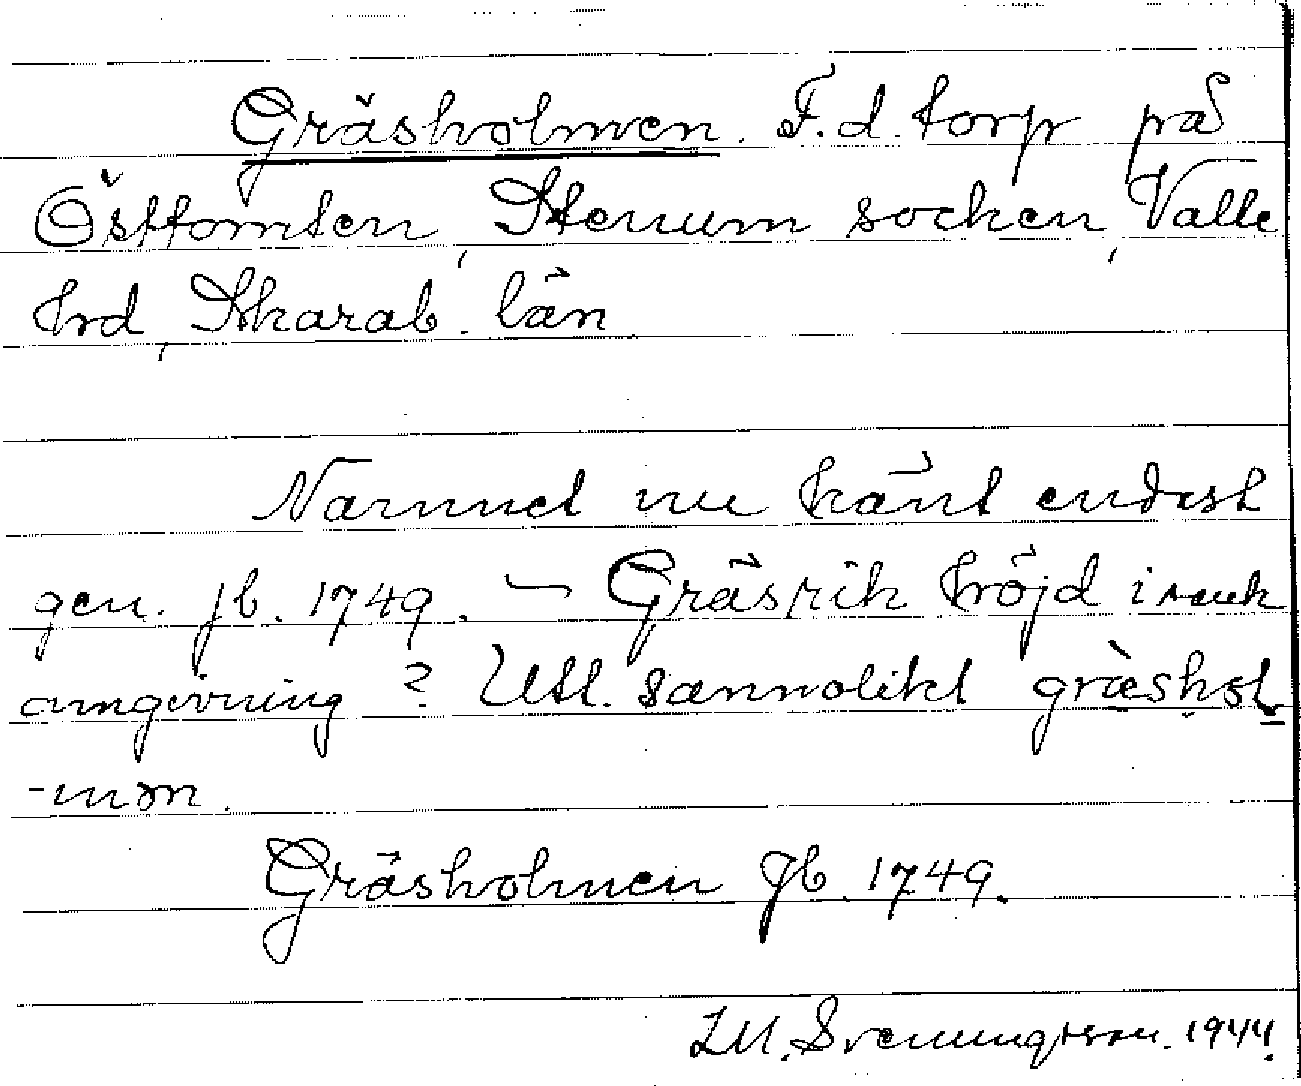 Gräsholmen. F.d. torp på
Östtomten, Stenum socken, Valle
hrd, Skarab. län
Namnet nu känt endast
gen. jb. 1749. – Gräsrik höjd i sank
omgivning? Utt. sannolikt græshol
-mən.
Gräsholmen Jb. 1749.
I.M. Svenungsson. 1944.